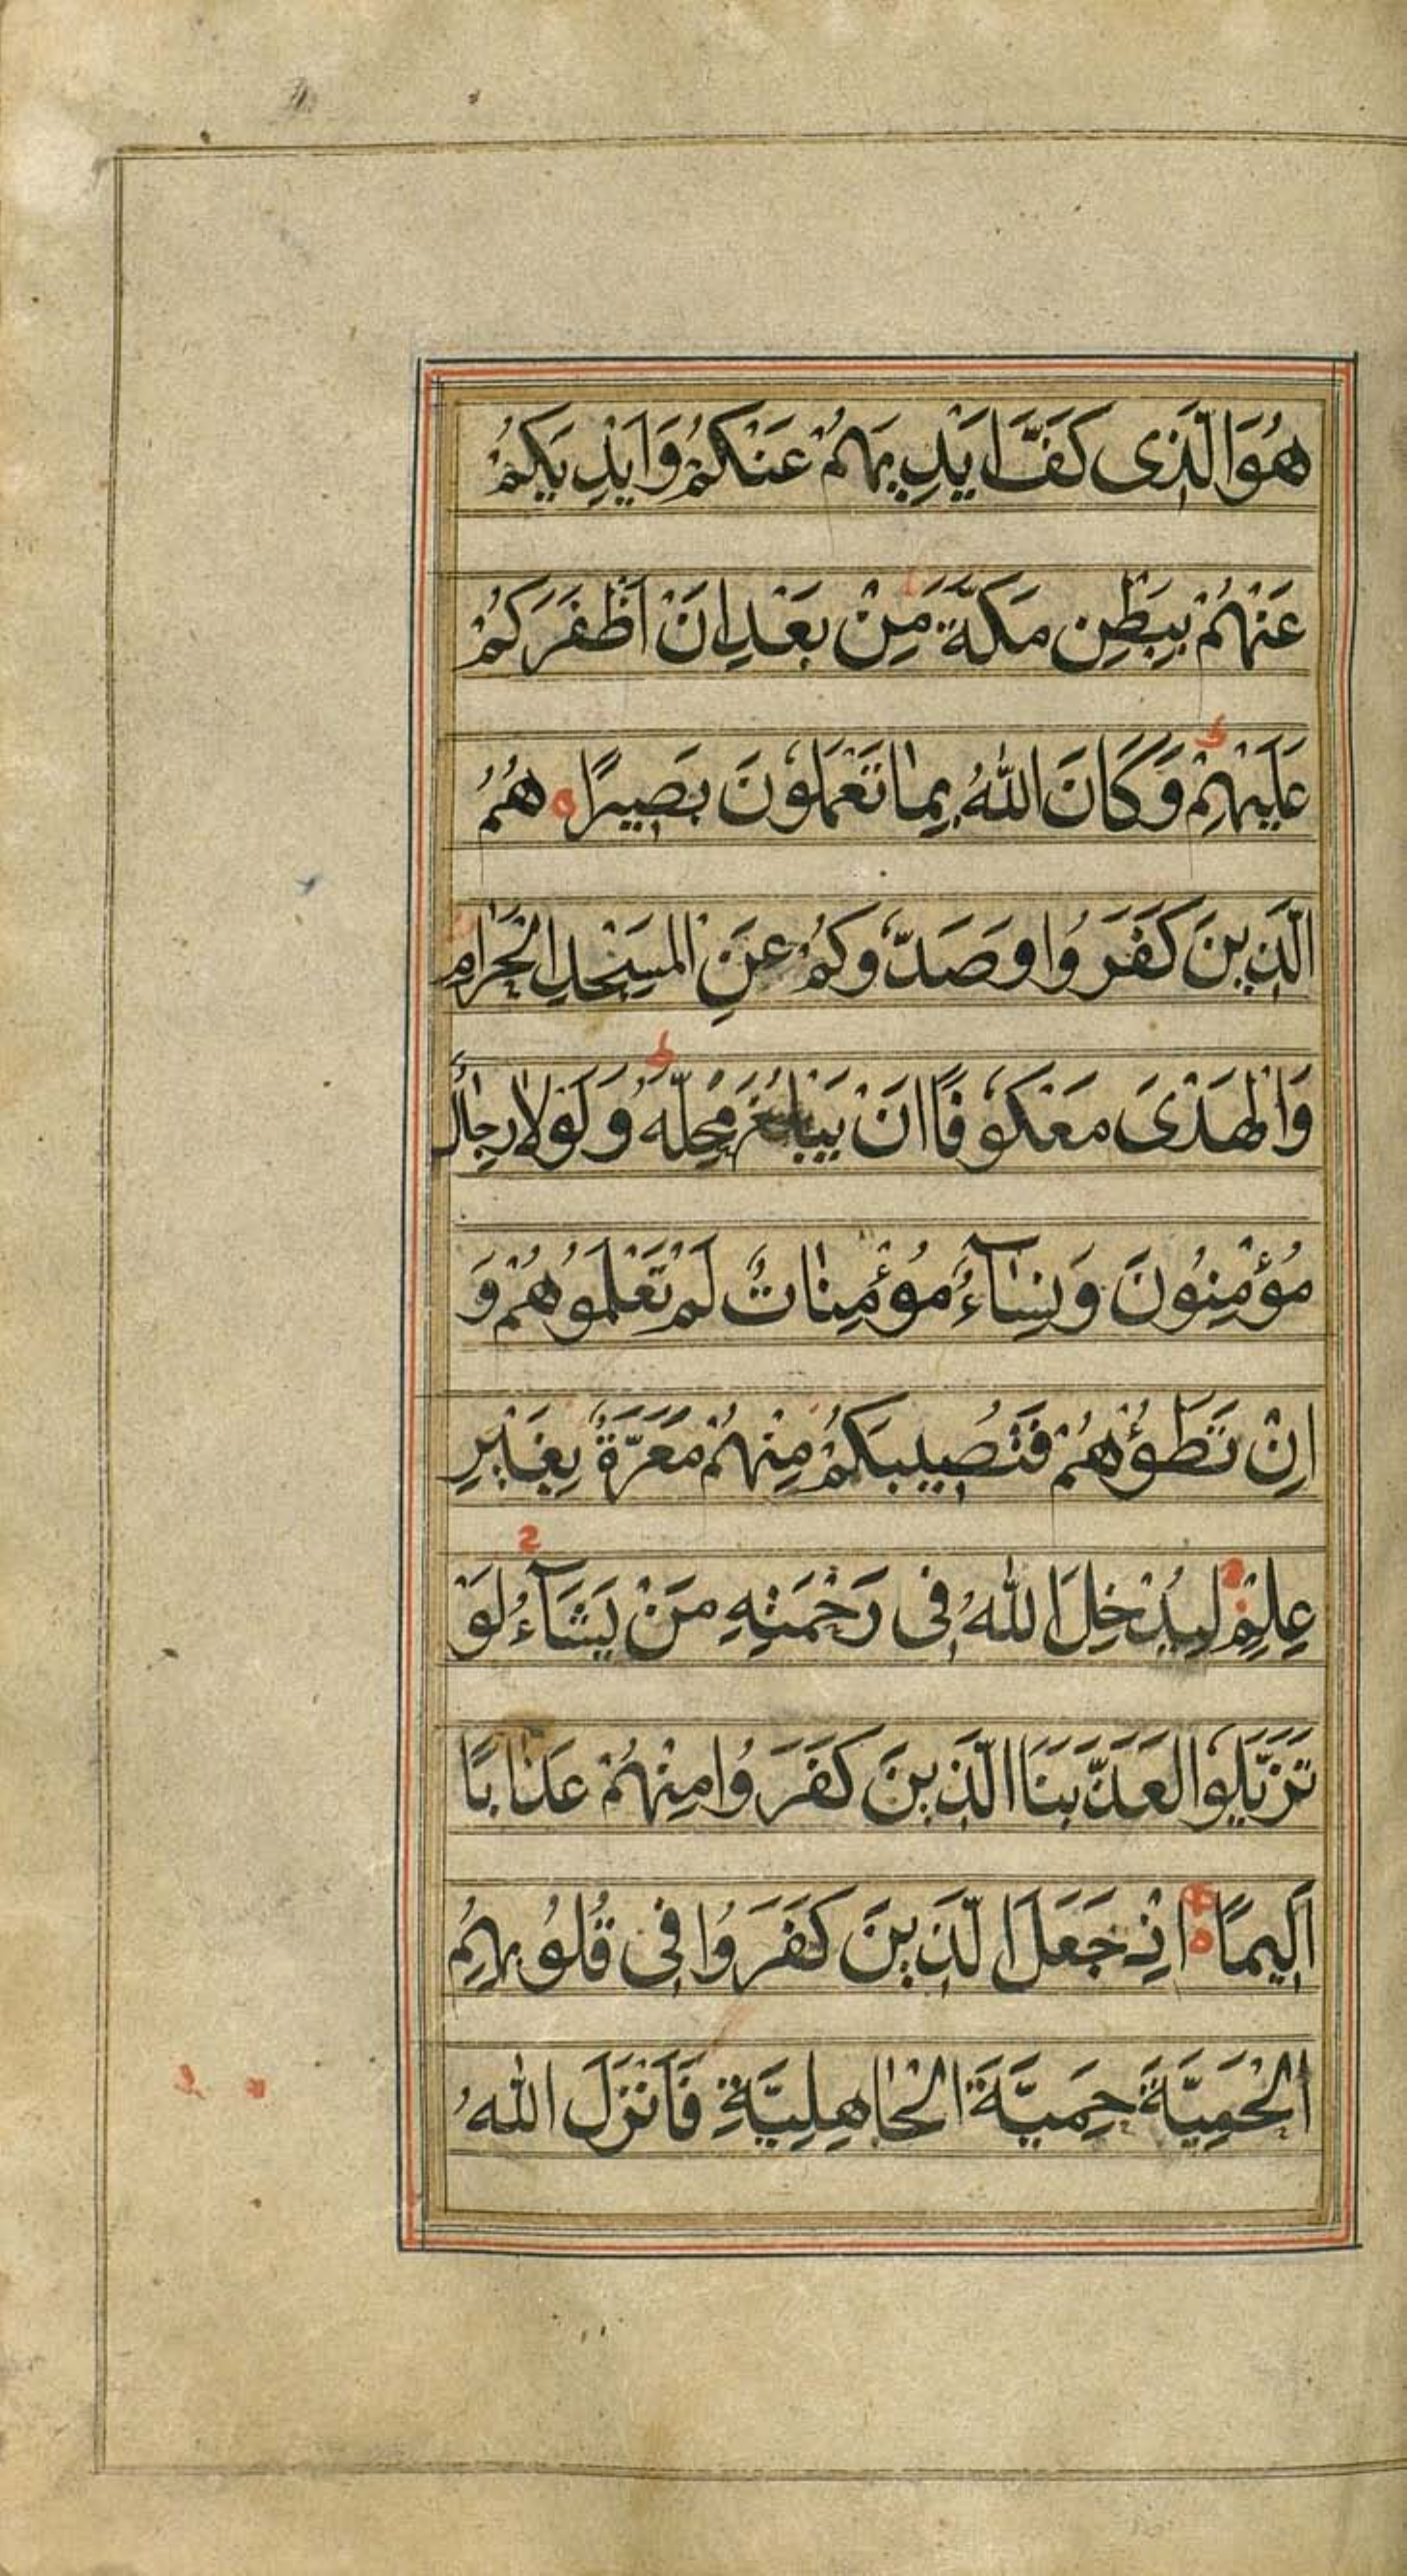 هُوَ الَّذِى كَفَّ اَيْدِيَهُمْ عَنْكُمْ وَاَيْدِيَكُمْ
عَنْهُمْ بِبَطْنِ مَكَّةَ مِنْ بَعْدِ اَنْ اَظْفَرَكُمْ
عَلَيْهِمْ ط وَكَانَ اللّٰهُ بِمَا تَعْمَلُوْنَ بَصِيرًا ه هُمُ
الَّذِينَ كَفَرُوا وَصَدُّوكُمْ عَنِ الْمَسْجِدِ الْحَرَامِ
وَالْهَدْىَ مَعْكُوفًا اَنْ يَبْلُغَ مَحِلَّهُ ط وَلَوْلَا رِجَالٌ
مُؤْمِنُونَ وَنِسَآءٌ مُؤْمِنَاتٌ لَمْ تَعْلَمُوهُمْ وَ
اِنْ تَطَؤُهُمْ فَتُصِيبَكُمْ مِنْهُمْ مَعَرَّةٌ بِغَيْرِ
عِلْمٍ لِيُدْخِلَ اللّٰهُ فِى رَحْمَتِهِ مَنْ يَشَآءُ لَوْ
تَزَيَّلُوا لَعَذَّبْنَا الَّذِينَ كَفَرُوا مِنْهُمْ عَذَابًا
اَلِيمًا ه اِذْ جَعَلَ الَّذِينَ كَفَرُوا فِى قُلُوبِهِمُ
الْحَمِيَّةَ حَمِيَّةَ الْجَاهِلِيَّةِ فَاَنْزَلَ اللّٰهُ